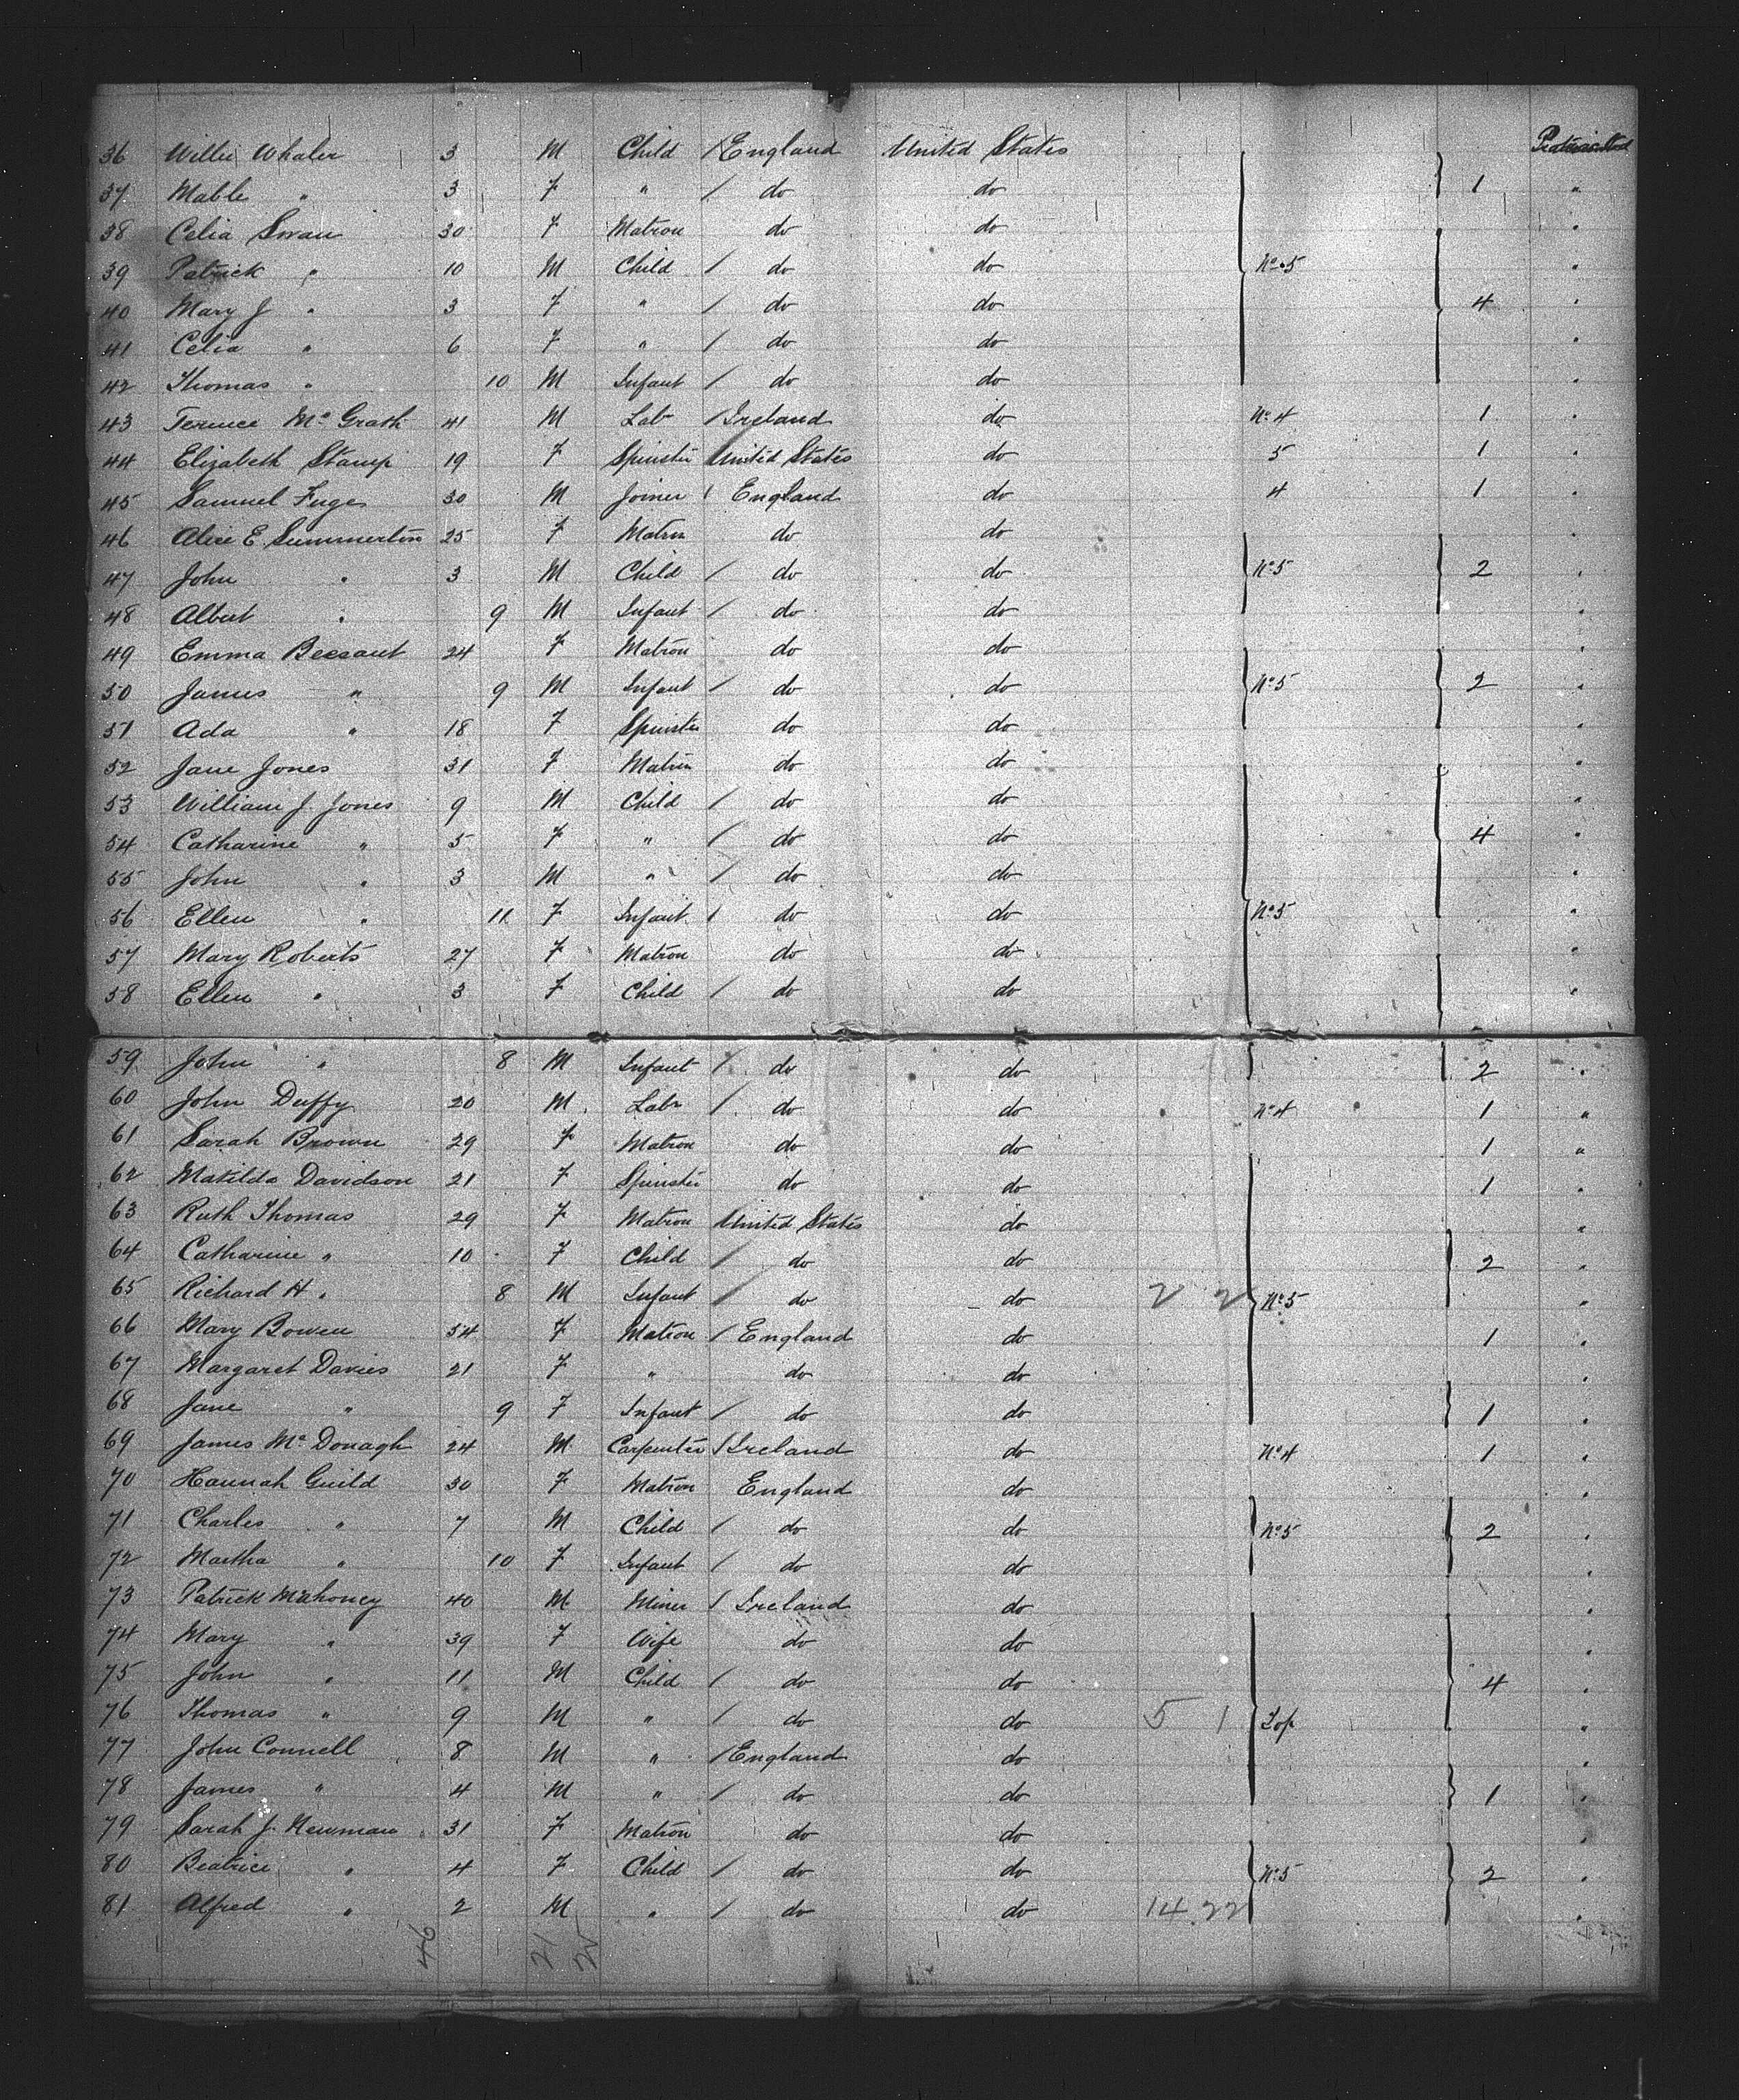 36 Willie Whaler 3 M Child / England United States
37 Mable " 3 F " / do do } 1 "
38 Celia Swan 30 F Matron do do "
39 Patrick " 10 M Child / do do { No. 5 "
40 Mary J " 3 F " / do do } 4 "
41 Celia " 6 F " / do do "
42 Thomas " 10 M Infant / do do "
43 Terence Mc Grath 41 M Lab / Ireland do No. 4 1 "
44 Elizabeth Stamp 19 F Spinster United States do 5 1 "
45 Samuel Fuge 30 M Joiner / England do 4 1 "
46 Alice E. Summerton 25 F Matrn do do "
47 John " 3 M Child / do do { No. 5 } 2 "
48 Albert " 9 M Infant / do do "
49 Emma Beesant 24 F Matron do do "
50 James " 9 M Infant / do do { No. 5 } 2 "
51 Ada " 18 F Spinster do do "
52 Jane Jones 31 F Matrn do do "
53 William J. Jones 9 M Child / do do "
54 Catharine " 5 F " / do do } 4 "
55 John " 3 M " / do do "
56 Ellen " 11 F Infant / do do { No. 5 "
57 Mary Roberts 27 F Matron do do "
58 Ellen " 3 F Child / do do "
59 John " 8 M Infant / do do 2 "
60 John Duffy 20 M Labr / do do No. 4 1 "
61 Sarah Brown 29 F Matron do do 1 "
62 Matilda Davidson 21 F Spinster do do 1 "
63 Ruth Thomas 29 F Matron United States do "
64 Catharine " 10 F Child / do do } 2 "
65 Richard H. " 8 M Infant / do do 2 2 { No. 5 "
66 Mary Bowen 54 F Matron / England do 1 "
67 Margaret Davies 21 F " do do "
68 Jane " 9 F Infant / do do } 1 "
69 James Mc Donagh 24 M Carpenter / Ireland do No. 4 1 "
70 Hannah Guild 30 F Matron England do "
71 Charles " 7 M Child / do do { No. 5 } 2 "
72 Martha " 10 F Infant / do do "
73 Patrick Mahoney 40 M Miner / Ireland do "
74 Mary " 39 F Wife do do "
75 John " 11 M Child / do do } 4 "
76 Thomas " 9 M " / do do 5 1 { Top "
77 John Connell 8 M " / England do "
78 James " 4 M " / do do } 1 "
79 Sarah J. Newman 31 F Matron do do "
80 Beatrice " 4 F Child / do do { No. 5 } 2 "
81 Alfred " 2 M " / do do 14 22 "
46 21 25